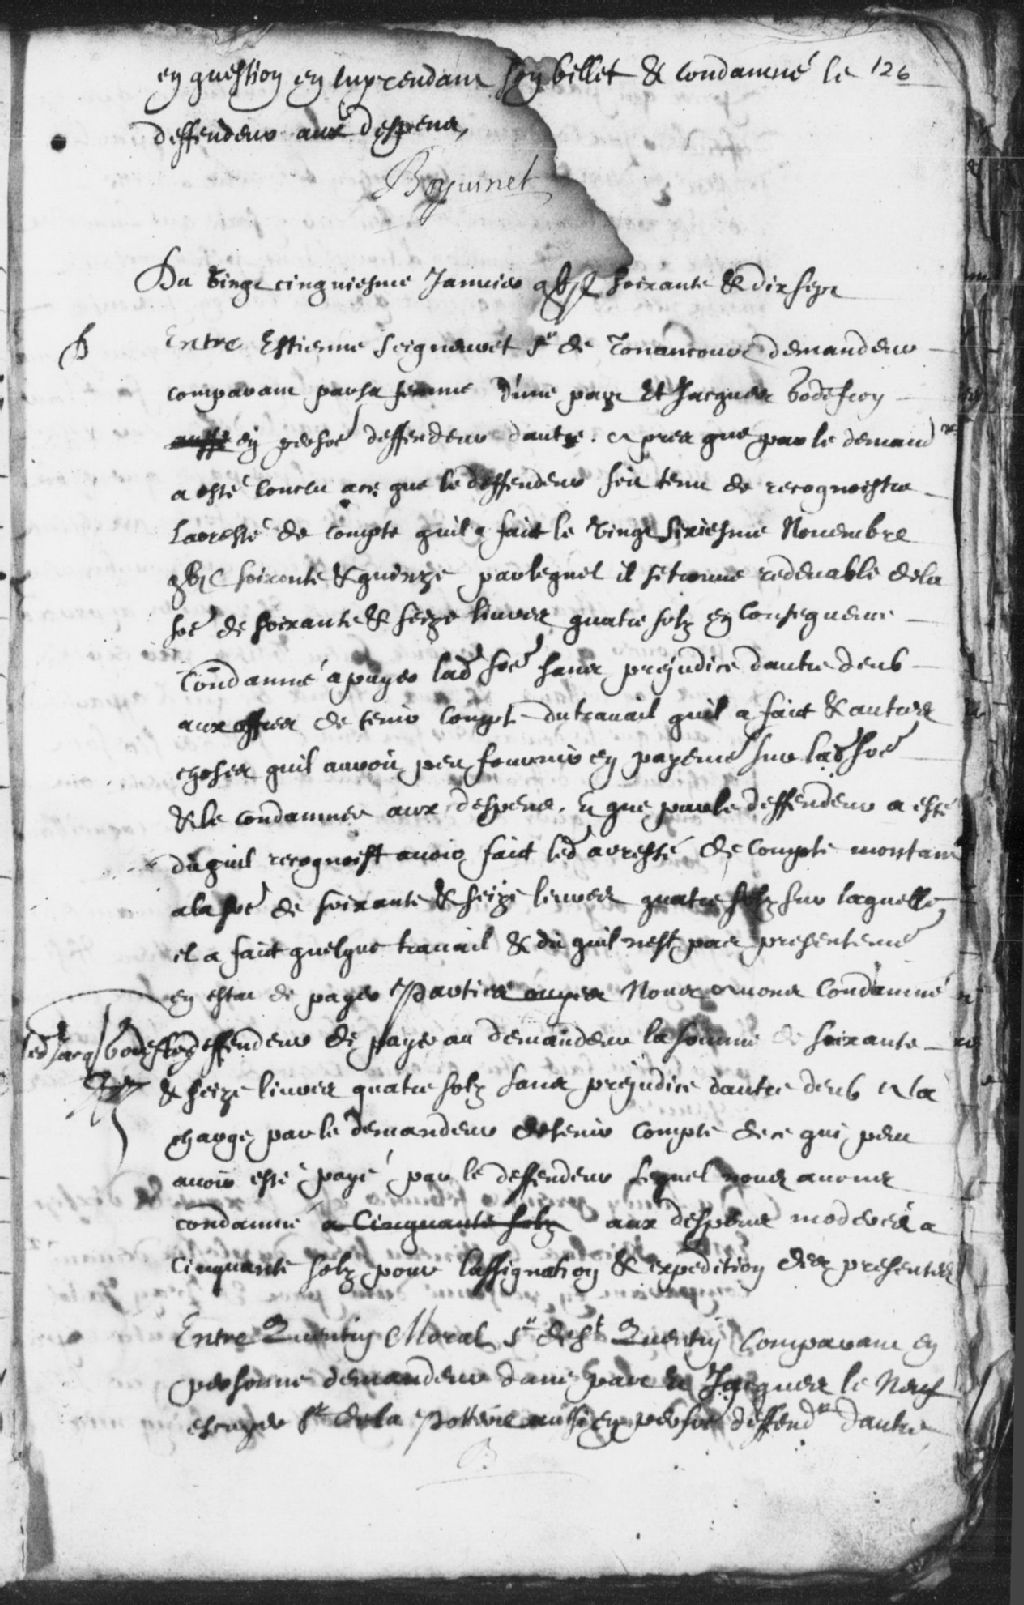 en question en luy rendant son billet & condamné le 126
deffendeur aux despens
Boyvinet
Du vingt cinquiesme Janvier gbjC soixante & dix sept
Entre Estienne Seigneuret Sr de Tonancour demandeur
comparant par sa femme d'une part Et Jacques Godefroy
aussy en persoe deffendeur dautre. apres que par le demandr
a esté conclu a ce que le deffendeur soit tenu de recognoistre
larresté de compte quil a fait le vingt sixiesme Novembre
gbjC soixante & quinze par lequel il se trouve redevable de la
soe de soixante & seize livres quatre solz en consequence
Condamné a payer lad soe sans prejudice dautre deub
aux offres de tenir compt du travail quil a fait & autres
choses quil auroit peu fournir en payemt sur lad soe
& le condamner aux despens. Et que par le deffendeur a esté
dit quil recognoist avoir fait led arresté de compte montant
a la soe de soixante & seize livres quatre solz sur laquelle
il a fait quelque travail & dit quil nest pas presentemt
en estat de payer Parties ouyes Nous avons Condamné
led Jacq Godefroy deffendeur de payer au demandeur la somme de soixante
& seize livres quatre solz sans prejudice dautre deub a la
charge par le demandeur de tenir compte de ce qui peu
avoir esté payé par le deffendeur lequel nous avons
condamné a Cinquante solz aux despens moderés a
Cinquante solz pour lassignation & expedition des presentes
Entre Quentin Moral Sr de St Quentin Comparant en
personne demandeur dune part Et Jacques le Neuf
escuyer Sr de la Potterie aussy en persoe deffendr dautre